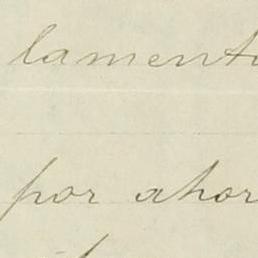 lament
por ahor